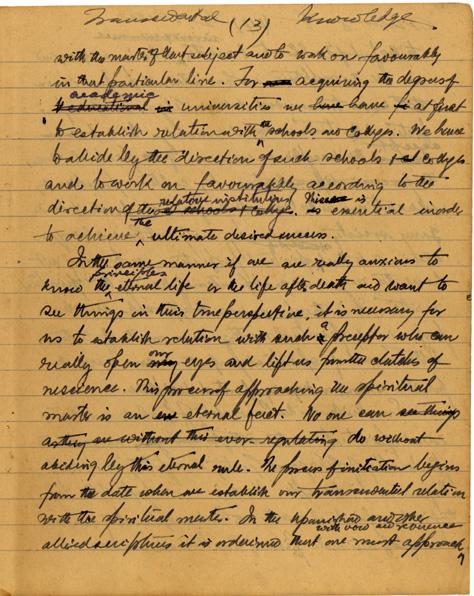 Transcendental (13) Knowledge
with the master of that subject and to work on favourably
in that particular line. For acquiring the degree of
academic
educational in universities we have have at first
to establish relation with the schools and colleges. We have
to abide by the direction of such schools and colleges
and to work on favourably according to the
relative institutions This is
direction of the schools & college. is essential in order
to achieve the ultimate desired success.
In the same manner if we are really anxious to
principles
know the eternal life or the life after death and want to
see things in their true perspective, it is necessary for
us to establish relation with such a Preceptor who can
really open our eyes and lift us from the clutches of
nescience. This process of approaching the spiritual
master is an eternal fact. No one can see things
without this ever regulating do without
abiding by this eternal rule. The process of initiation begins
from the date when we establish our transcendental relation
with the spiritual master. In the Upanishad and other
with vow and reverence
allied scriptures it is ordained that one must approach